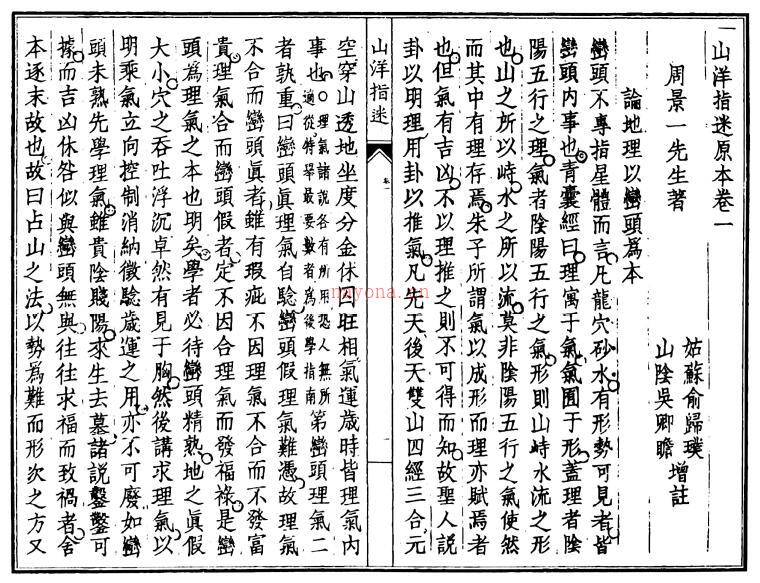 山洋指迷原本卷一
周景一先生著
姑蘇俞歸璞
山陰吳卿瞻
增註
論地理以巒頭爲本
巒頭不專指星體而言凡龍穴砂水有形勢可見者皆
巒頭內事也青囊經曰理寓于氣氣囿于形蓋理者陰
陽五行之理氣者陰陽五行之氣形則山峙水流之形
也山之所以峙水之所以流莫非陰陽五行之氣使然
而其中有理存焉朱子所謂氣以成形而理亦賦焉者
也但氣有吉凶不以理推之則不可得而知故聖人說
卦以明理用卦以推氣凡先天後天雙山四經三合元
山洋指迷
卷一
空穿山透地坐度分金休囚旺相氣運歲時皆理氣內
事也〇理氣諸說各有所用恐人無所適從特舉最要數者爲後學指南第巒頭理氣二
者孰重曰巒頭眞理氣自驗巒頭假理氣難憑故理氣
不合而巒頭眞者雖有瑕疵不因理氣不合而不發富
貴理氣合而巒頭假者定不因合理氣而發福祿是巒
頭爲理氣之本也明矣學者必待巒頭精熟地之眞假
大小穴之吞吐浮沉卓然有見于胸然後講求理氣以
明乘氣立向控制消納徵驗歲運之用亦不可廢如巒
頭未熟先學理氣雖貴陰賤陽求生去墓諸說鑿鑿可
據而吉凶休咎似與巒頭無與往往求福而致禍者舍
本逐末故也故曰占山之法以勢爲難而形次之方又
nayona.cn